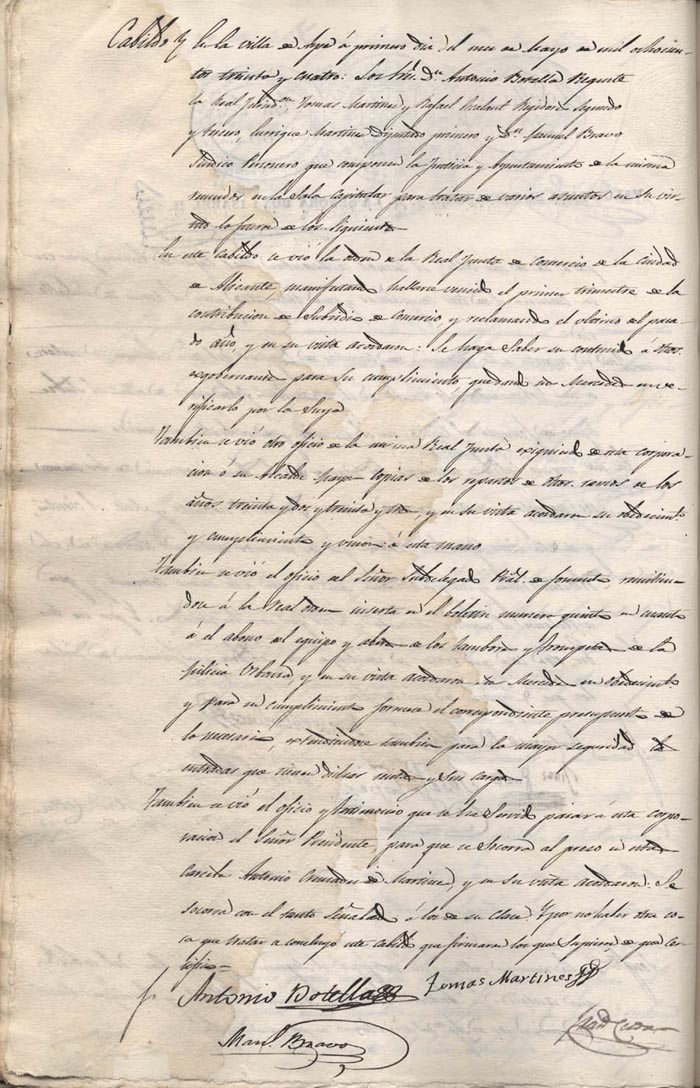 Cabildo En la villa de Aspe á primero dia del mes de Mayo de mil ochocien-
tos treinta y cuatro: Los Sres. Dn. Antonio Botella Regente
la Real Jurisdon., Tomas Martinez y Rafael Regidores segundo
y tercero, Enrique Martinez Diputado primero y Dn. Manuel Bravo
Sindico Personero que componen la Justicia y Ayuntamiento de la misma
reunidos en la Sala Capitular para tratar de varios asuntos en su vir-
tud lo fueron de los siguientes
En este cabildo se vió la orden de la Real Junta de Comercio de la Ciudad
de Alicante, manifestando hallarse vencido el primer trimestre de la
contribucion de Subsidio de Comercio y reclamando el ultimo del pasa-
do año, y en su vista acordaron: Se haga saber su contenido á
para su cumplimiento quedando sus Mercedes en ve-
rificarlo por la Suya
Tambien se vió otro oficio de la misma Real Junta exigiendo de esta corpora-
cion ó su Alcalde Mayor copias de los repartos de dhos. ramos de los
años treinta y dos y treinta y tres, y en su vista acordaron su obedecimto.
y cumplimiento y á esta mano
Tambien se vió el oficio del Señor Subdelegado Pral. de fomento, remitien-
dose á la Real orden inserta en el boletin numero quinto en cuanto
á el abono del equipo y de los tambores y trompetas de la
Milicia Urbana, y en su vista acordaron sus Mercedes su obedecimto.
y para su cumplimiento formese el correspondiente presupuesto de
lo necesario, tambien para la mayor seguridad las
entradas que tienen dichos
Tambien se vió el oficio y testimonio que se ha servido pasar á esta corpo-
racion el Señor Presidente, para que se socorra al preso en esta
Carcel Antonio Martinez, y en su vista acordaron: Se
socorra con el tanto señalado á los de su clase. Y por no haber otra co-
sa que tratar se concluyó este cabildo que firmaron los que supieron, de que cer-
tifico=
Antonio Botella Tomas Martines
Manl. Bravo